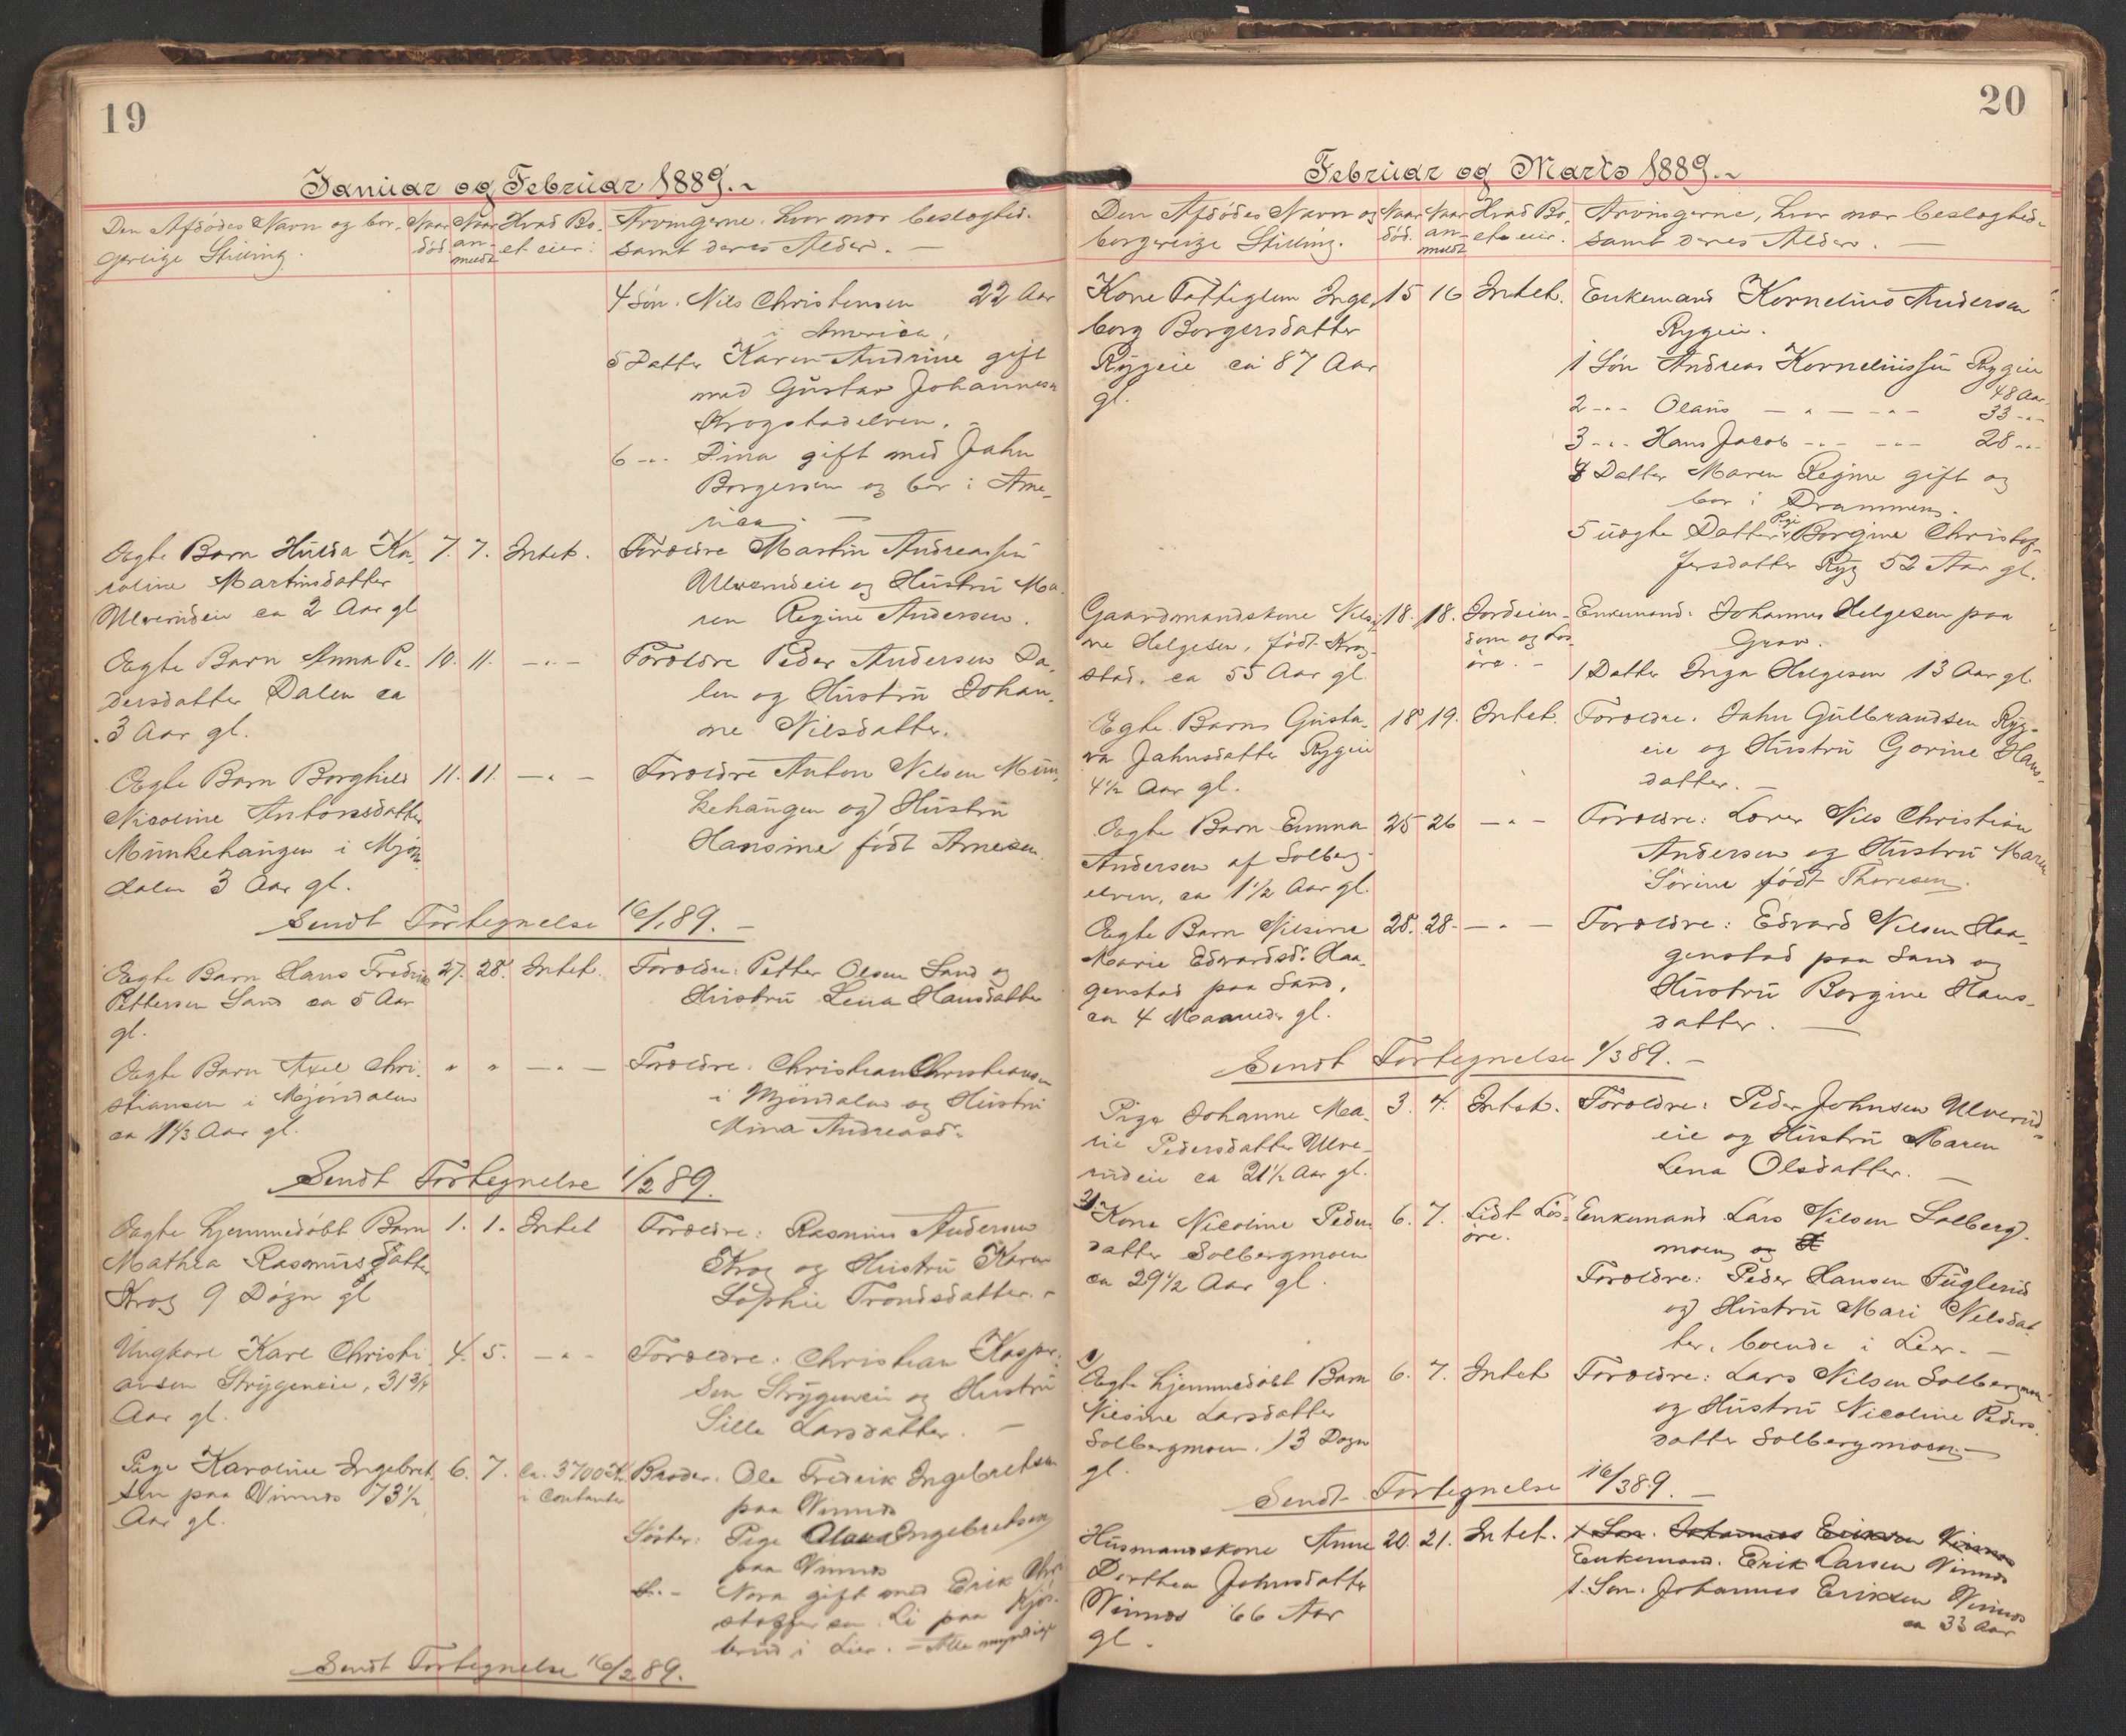 19
Januar og Februar 1889.~
Den Afdödes Navn og bor-
gerlige Stilling.
Naar
död
Naar
an-
meldt
Hvad Bo-
et eier:
Arvingerne, hvor nær beslægtede
samt deres Alder. —
4 Sön. Nils Christensen 22 Aar
i America.
5 Datter Karen Andrine gift
med Gustav Johannesen
Krogstadelven. -
6 -"- Dina gift med Jahn
Borgersen og bor i Ame-
rica. —
Ægte Barn Hulda Ka- 7. 7. Intet. Forældre Martin Andreassen
roline Martinsdatter
Ulverudeie og Hustru Ma-
Ulverudeie ca 2 Aar gl
ren Regine Andersen.
Ægte Barn Anna Pe- 10. 11. -"- Forældre Peder Andersen Da-
dersdatter Dalen ca
len og Hustru Johan-
3 Aar gl.
ne Nilsdatter.
Ægte Barn Borghild 11. 11. -"- Forældre Anton Nilsen Mun-
Nicoline Antonsdatter
kehaugen og Hustru
Munkehaugen i Mjön-
Hansine födt Arnesen.
dalen 3 Aar gl.
Sendt Fortegnelse 16/1 89. —
Ægte Barn Hans Fredrik 27. 28. Intet. Forældre: Petter Olsen Sand og
Pettersen Sand ca 5 Aar
Hustru Lena Hansdatter
gl.
Ægte Barn Axel Chri- " " -"- Forældre: Christian Christiansen
stiansen i Mjöndalen
i Mjöndalen og Hustru
ca 1 1/3 Aar gl.
Mina Andreasd.
Sendt Fortegnelse 1/2 89.
Ægte hjemmedöbt Barn 1. 1. Intet Forældre: Rasmus Andersen
Mathea Rasmusdatter
Krog og Hustru Karen
Krog 9 Dögn gl
Sophie Trondsdatter. -
Ungkarl Karl Christi- 4. 5. -"- Forældre: Christian Kasper-
ansen Strygeneie, 31 3/4
sen Strygeneie og Hustru
Aar gl.
Sille Larsdatter. —
Pige Karoline Ingebret- 6. 7. Ca. 3700 Kr. Broder: Ole Fredrik Ingebretsen
sen paa Vinnes 73 1/2
i Contanter
paa Vinnes
Aar gl.
Söster: Pige Ingebretsen
paa Vinnes
Nora gift med Erik Chri-
stoffersen Li paa Kjös-
terud i Lier. — Alle myndige
Sendt Fortegnelse 16/2 89.
20
Februar og Marts 1889.~
Den Afdödes Navn og
borgerlige Stilling.
Naar
död.
Naar
an-
meldt
Hvad Bo-
et eier.
Arvingerne, hvor nær beslægtede
samt deres Alder. —
Kone Fattiglem Inge- 15 16 Intet. Enkemand Kornelius Andersen
borg Borgersdatter
Rygeie.
Rygeie ca 87 Aar
1 Sön Andreas Korneliussen Rygeie
gl.
48 Aar
2 -"- Olaus — " — -"- 33 -"-
3 -"- Hans Jacob -"- -"- 28 -"-
4 Datter Maren Regine gift og
bor i Drammen.
5 uægte Datter Pige Borgine Christof-
fersdatter Ryg 52 Aar gl.
Gaardmandskone Nilsi- 18. 18. Jordeien- Enkemand: Johannes Helgesen paa
ne Helgesen, födt Krog-
dom og Lös-
Grav.
stad. ca 55 Aar gl
öre. -
1 Datter Inga Helgesen 13 Aar gl.
Ægte Barn Gusta- 18 19. Intet. Forældre. Jahn Gulbrandsen Ryg-
va Jahnsdatter Rygeie
eie og Hustru Gorine Hans-
4 1/2 Aar gl.
datter. —
Ægte Barn Emma 25 26 -"- Forældre: Lærer Nils Christian
Andersen af Solberg-
Andersen og Hustru Maren
elven, ca 1 1/2 Aar gl.
Sörine födt Thoresen.
Ægte Barn Nilsine 28. 28. -"- Forældre: Edvard Nilsen Haa-
Marie Edvardsd. Haa-
genstad paa Sand og
genstad paa Sand,
Hustru Borgine Hans-
ca 4 Maaneder gl.
datter. —
Sendt Fortegnelse 1/3 89. —
Pige Johanne Ma- 3. 4. Intet. Forældre: Peder Johnsen Ulverud-
rie Pedersdatter Ulve-
eie og Hustru Maren
rudeie ca 21 1/2 Aar gl.
Lena Olsdatter. —
Kone Nicoline Peders- 6. 7. Lidt Lös- Enkemand Lars Nilsen Solberg-
datter Solbergmoen
öre.
moen og
ca 29 1/2 Aar gl.
Forældre: Peder Hansen Fuglerud
og Hustru Mari Nilsdat-
ter, boende i Lier. —
Ægte hjemmedöbt Barn 6. 7. Intet Forældre: Lars Nilsen Solbergmoen
Nilsine Larsdatter
og Hustru Nicoline Peders-
Solbergmoen. 13 Dögn
datter Solbergmoen. —
gl.
Sendt Fortegnelse 16/3 89. —
Husmandskone Anne 20. 21. Intet. 1 Sön. Johannes Eriksen Vinnes
Dorthea Johnsdatter
Enkemand. Erik Larsen Vinnes
Vinnes 66 Aar
1. Sön. Johannes Eriksen Vinnes
gl.
ca 33 Aar